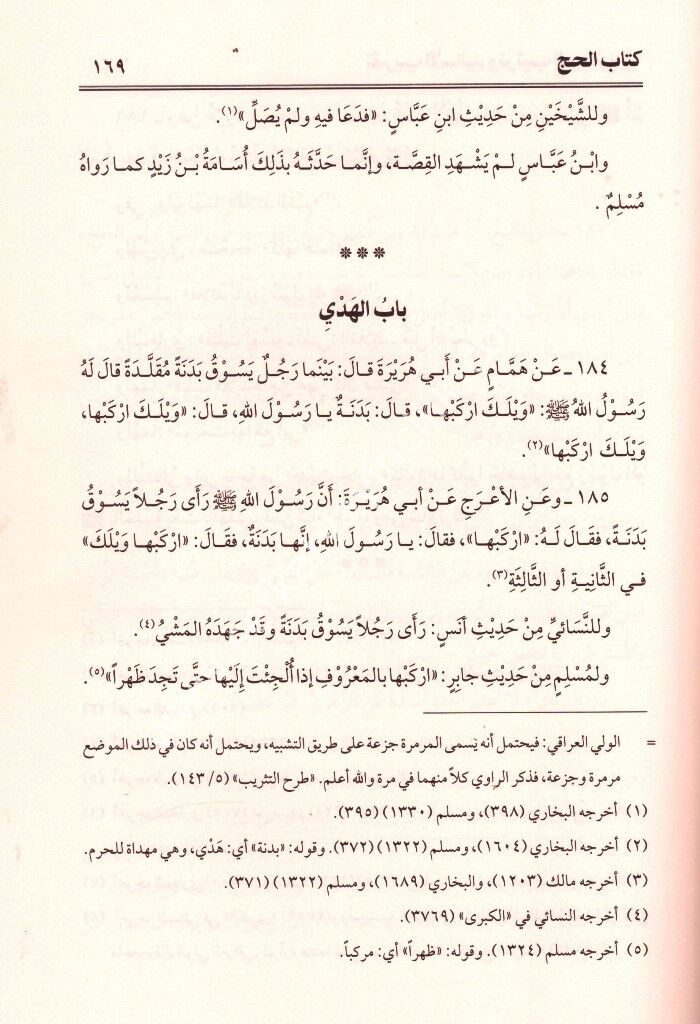 كتاب الحج ١٦٩
وللشَّيْخَيْنِ مِنْ حَدِيْثِ ابنِ عَبَّاسٍ: «فدَعَا فيهِ ولمْ يُصَلِّ»(١).
وابْنُ عَبَّاسٍ لمْ يَشْهَدِ القِصَّة، وإنَّما حَدَّثَهُ بذَلِكَ أُسَامَةُ بْنُ زَيْدٍ كما رَواهُ
مُسْلِمٌ .
***
بابُ الهَدْيِ
١٨٤ ـ عَنْ هَمَّامٍ عَنْ أبي هُرَيْرَةَ قالَ: بَيْنَما رَجُلٌ يَسُوْقُ بَدَنَةً مُقَلَّدَةً قالَ لَهُ
رَسُوْلُ اللهُ ﷺ: «وَيْلَكَ ارْكَبْها»، قالَ: بَدَنَةٌ يا رَسُوْلَ اللهِ، قالَ: «وَيْلَكَ ارْكَبْها،
وَيْلَكَ ارْكَبْها»(٢).
١٨٥ ـ وعَنِ الأعْرَجِ عَنْ أبي هُرَيْرَةَ: أنَّ رَسُوْلَ اللهِ ﷺ رَأى رَجُلاً يَسُوْقُ
بَدَنَةً، فقَالَ لَهُ: «ارْكَبْها»، فقالَ: يا رَسُوْلَ اللهِ، إنَّها بَدَنَةٌ، فقَالَ: «ارْكَبْها وَيْلَكَ»
في الثَّانِيَةِ أو الثَّالِثَةِ(٣).
وللنَّسَائيِّ مِنْ حَدِيْثِ أنَسٍ: رَأى رَجُلاً يَسُوْقُ بَدَنَةً وقَدْ جَهَدَهُ المَشْيُ(٤).
ولمُسْلِمٍ مِنْ حَدِيْثِ جابِرٍ: «ارْكَبْها بالمَعْرُوْفِ إذا أُلْجِئْتَ إلَيْها حتَّى تَجِدَ ظَهْراً»(٥).
= الولي العراقي: فيحتمل أنه يُسمى المرمرة جزعة على طريق التشبيه، ويحتمل أنه كان في ذلك الموضع
مرمرة وجزعة، فذكر الراوي كلاً منهما في مرة والله أعلم. «طرح التثريب» (٥/ ١٤٣).
(١) أخرجه البخاري (٣٩٨)، ومسلم (١٣٣٠) (٣٩٥).
(٢) أخرجه البخاري (١٦٠٤)، ومسلم (١٣٢٢) (٣٧٢). وقوله: «بدنة» أي: هَدْي، وهي مهداة للحرم.
(٣) أخرجه مالك (١٢٠٣)، والبخاري (١٦٨٩)، ومسلم (١٣٢٢) (٣٧١).
(٤) أخرجه النسائي في «الكبرى» (٣٧٦٩).
(٥) أخرجه مسلم (١٣٢٤). وقوله: «ظهراً» أي: مركباً.